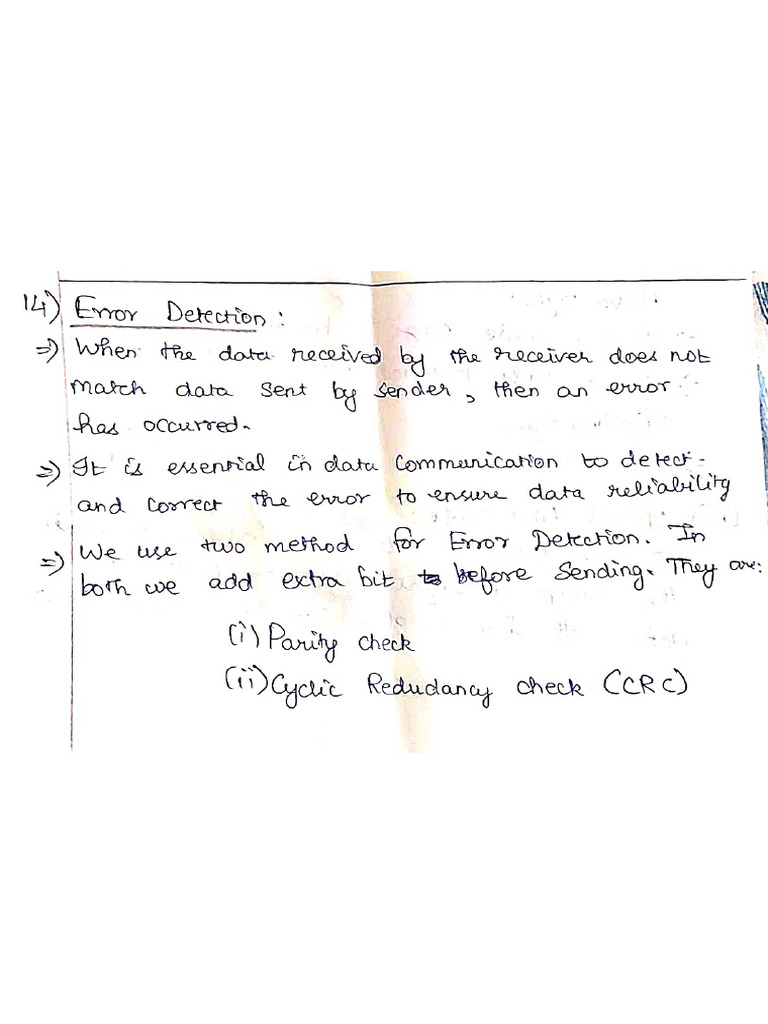 14) Error Detection :
⇒) When the data received by the receiver does not
match data sent by sender, then an error
has occurred.
⇒) It is essential in data communication to detect
and correct the error to ensure data reliability
⇒) We use two method for Error Detection. In
both we add extra bit before Sending. They are:
(i) Parity check
(ii) Cyclic Redudancy check (CRC)